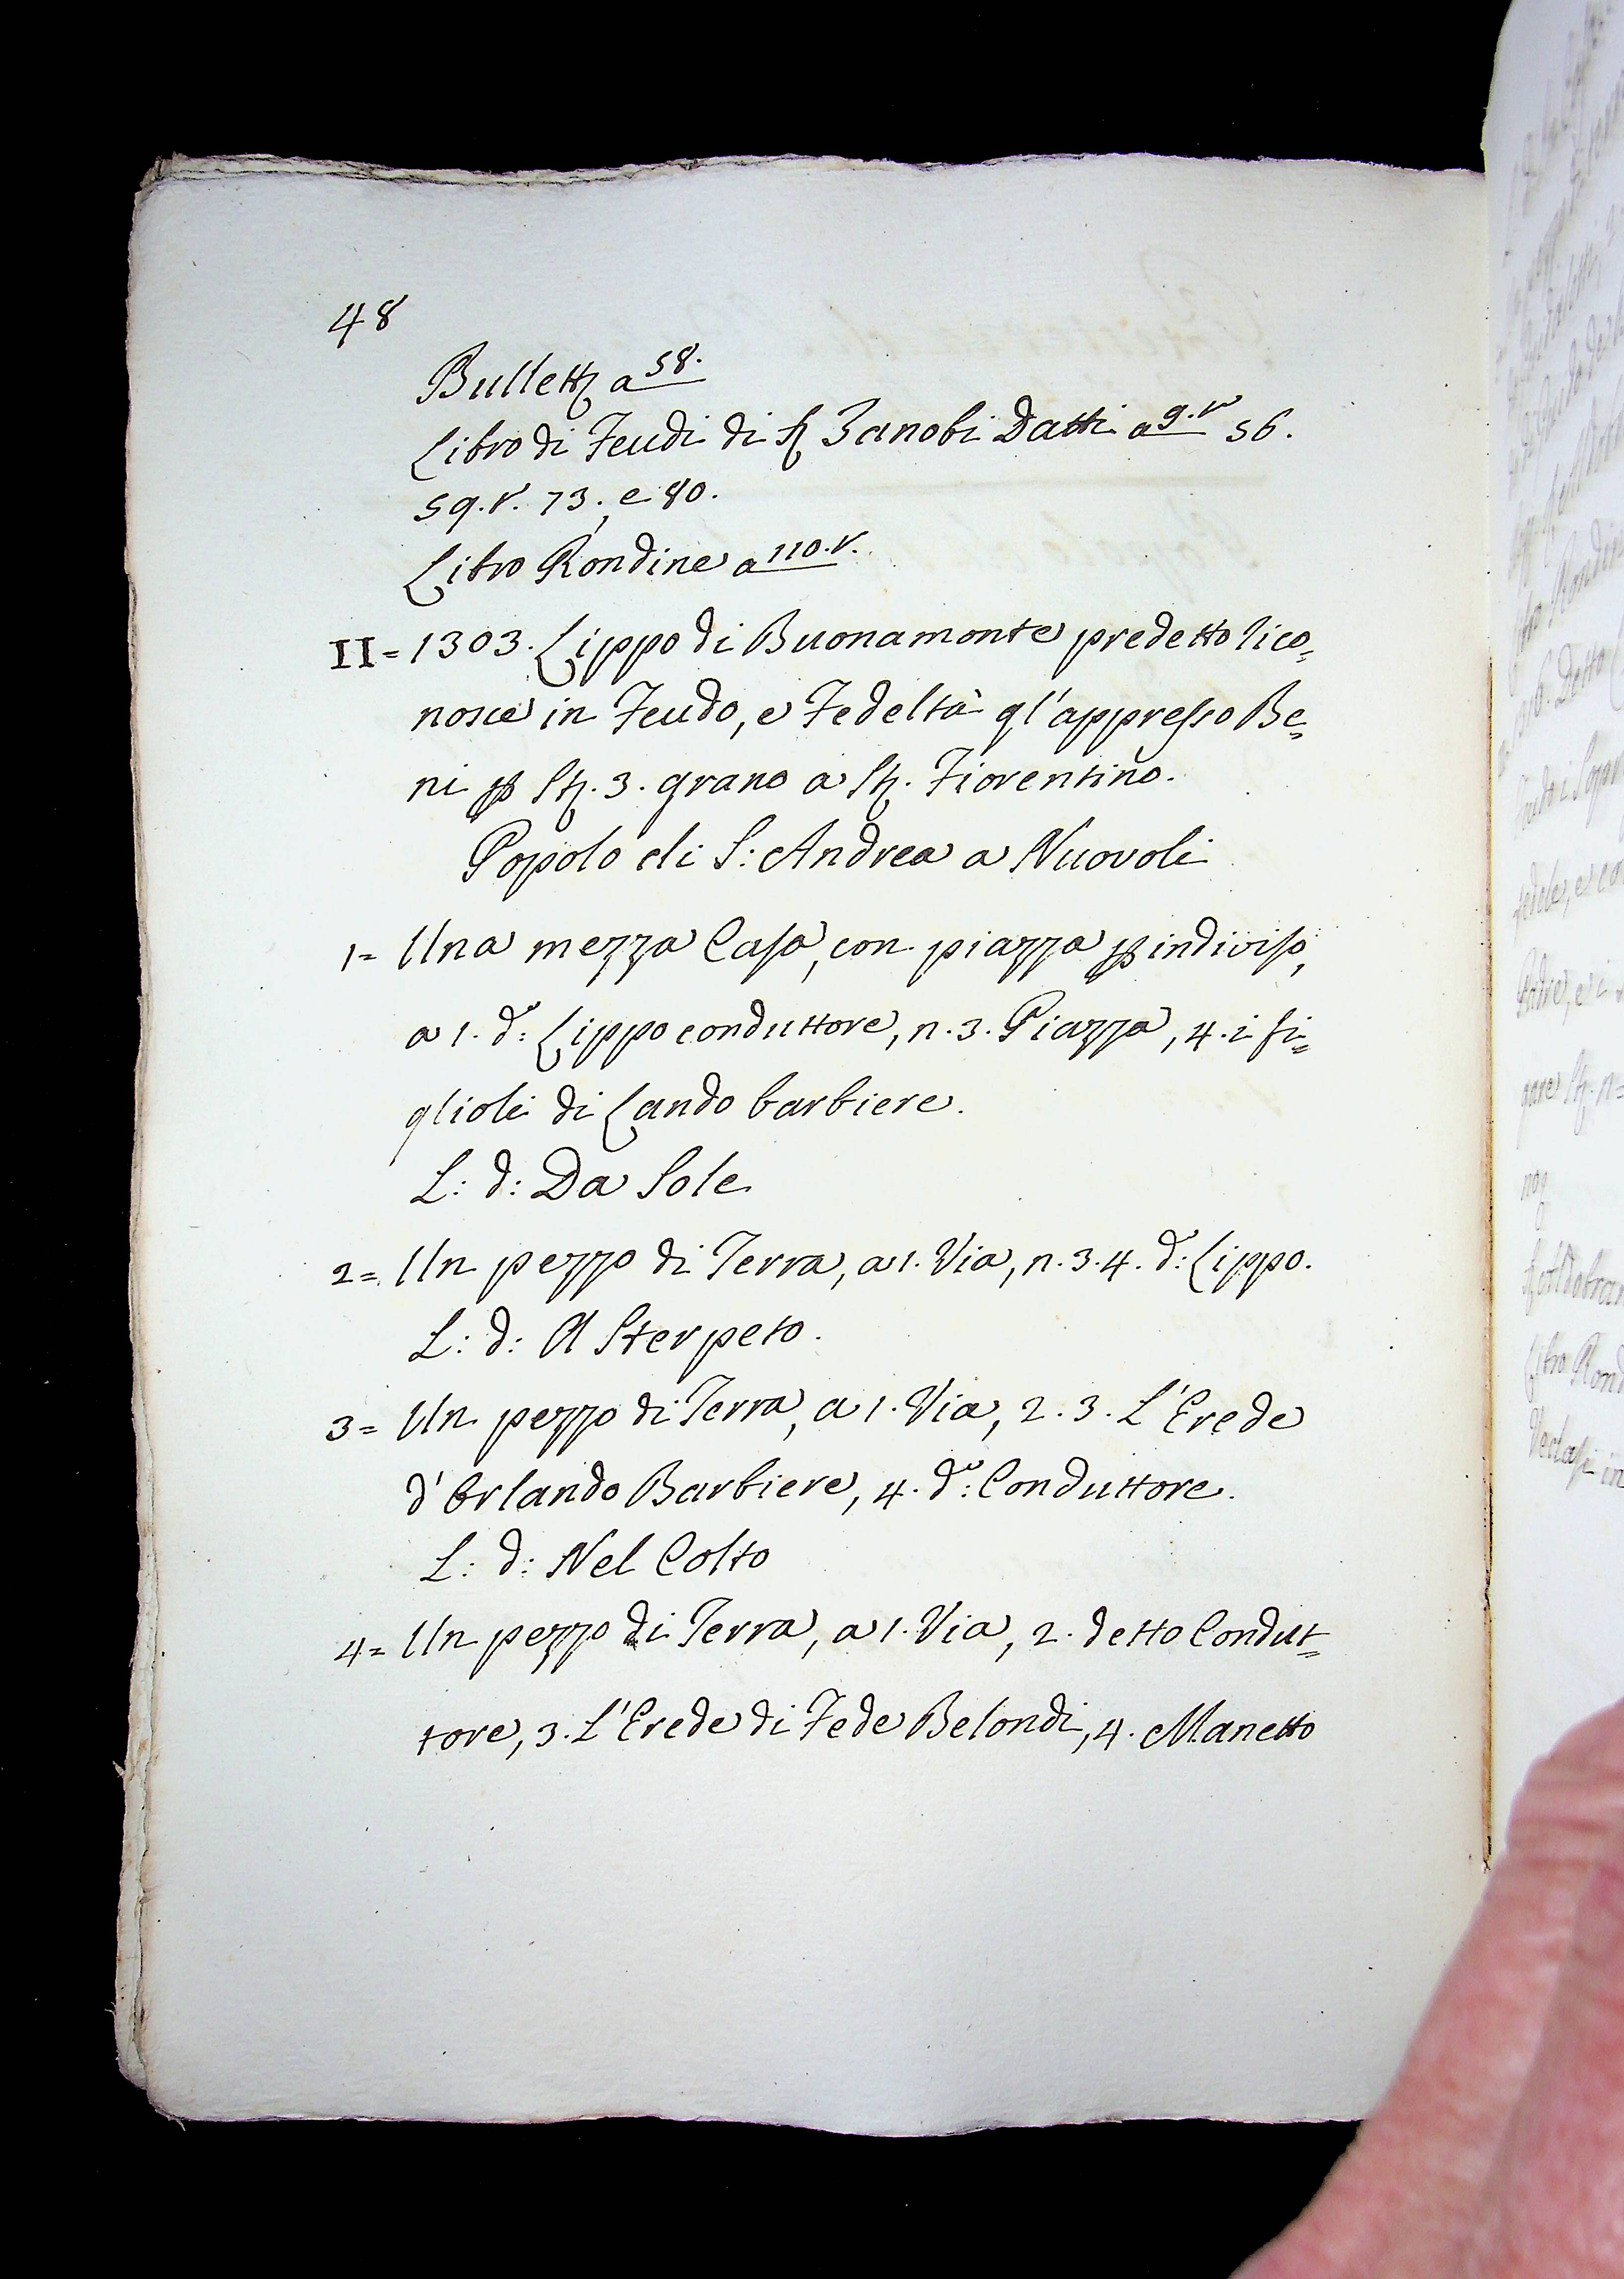 48
Bullett a 58.
Libro di Feudi di S Zanobi Datti a 9.v 56.
59.v. 73, e 80.
Libro Rondine a 110.v.
II= 1303. Lippo di Buonamonte predetto rico=
nosce in Feudo, e Fedeltà gl'appresso Be=
ni p St. 3. grano a St. Fiorentino.
Popolo di S: Andrea a Nuovoli
1= Una mezza Casa, con piazza p indiviso,
a 1. do: Lippo conduttore, n. 3. Piazza, 4. i fi=
glioli di Lando barbiere.
L: d: Da Sole
2= Un pezzo di Terra, a 1. Via, n. 3. 4. do: Lippo.
L: d: A Sterpeto.
3= Un pezzo di Terra, a 1. Via, 2. 3. L'Erede
d'Orlando Barbiere, 4. do: Conduttore.
L: d: Nel Colto
4= Un pezzo di Terra, a 1. Via, 2. detto Condut=
tore, 3. L'Erede di Fede Belondi, 4. Manetto